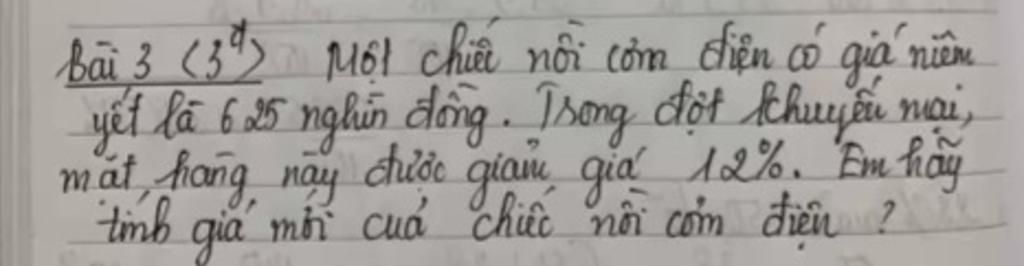 Bài 3 (3đ) Một chiếc nồi cơm điện có giá niêm
yết là 625 nghìn đồng. Trong đợt khuyến mại,
mặt hàng này được giảm giá 12%. Em hãy
tính giá mới của chiếc nồi cơm điện ?